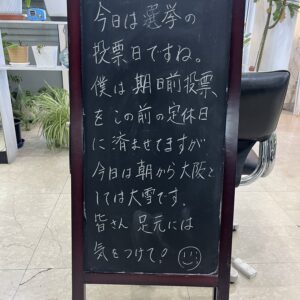 今日は選挙の
投票日ですね。
僕は期日前投票
をこの前の定休日
に済ませてますが
今日は朝から大阪と
しては大雪です。
皆さん足元には
気をつけて?